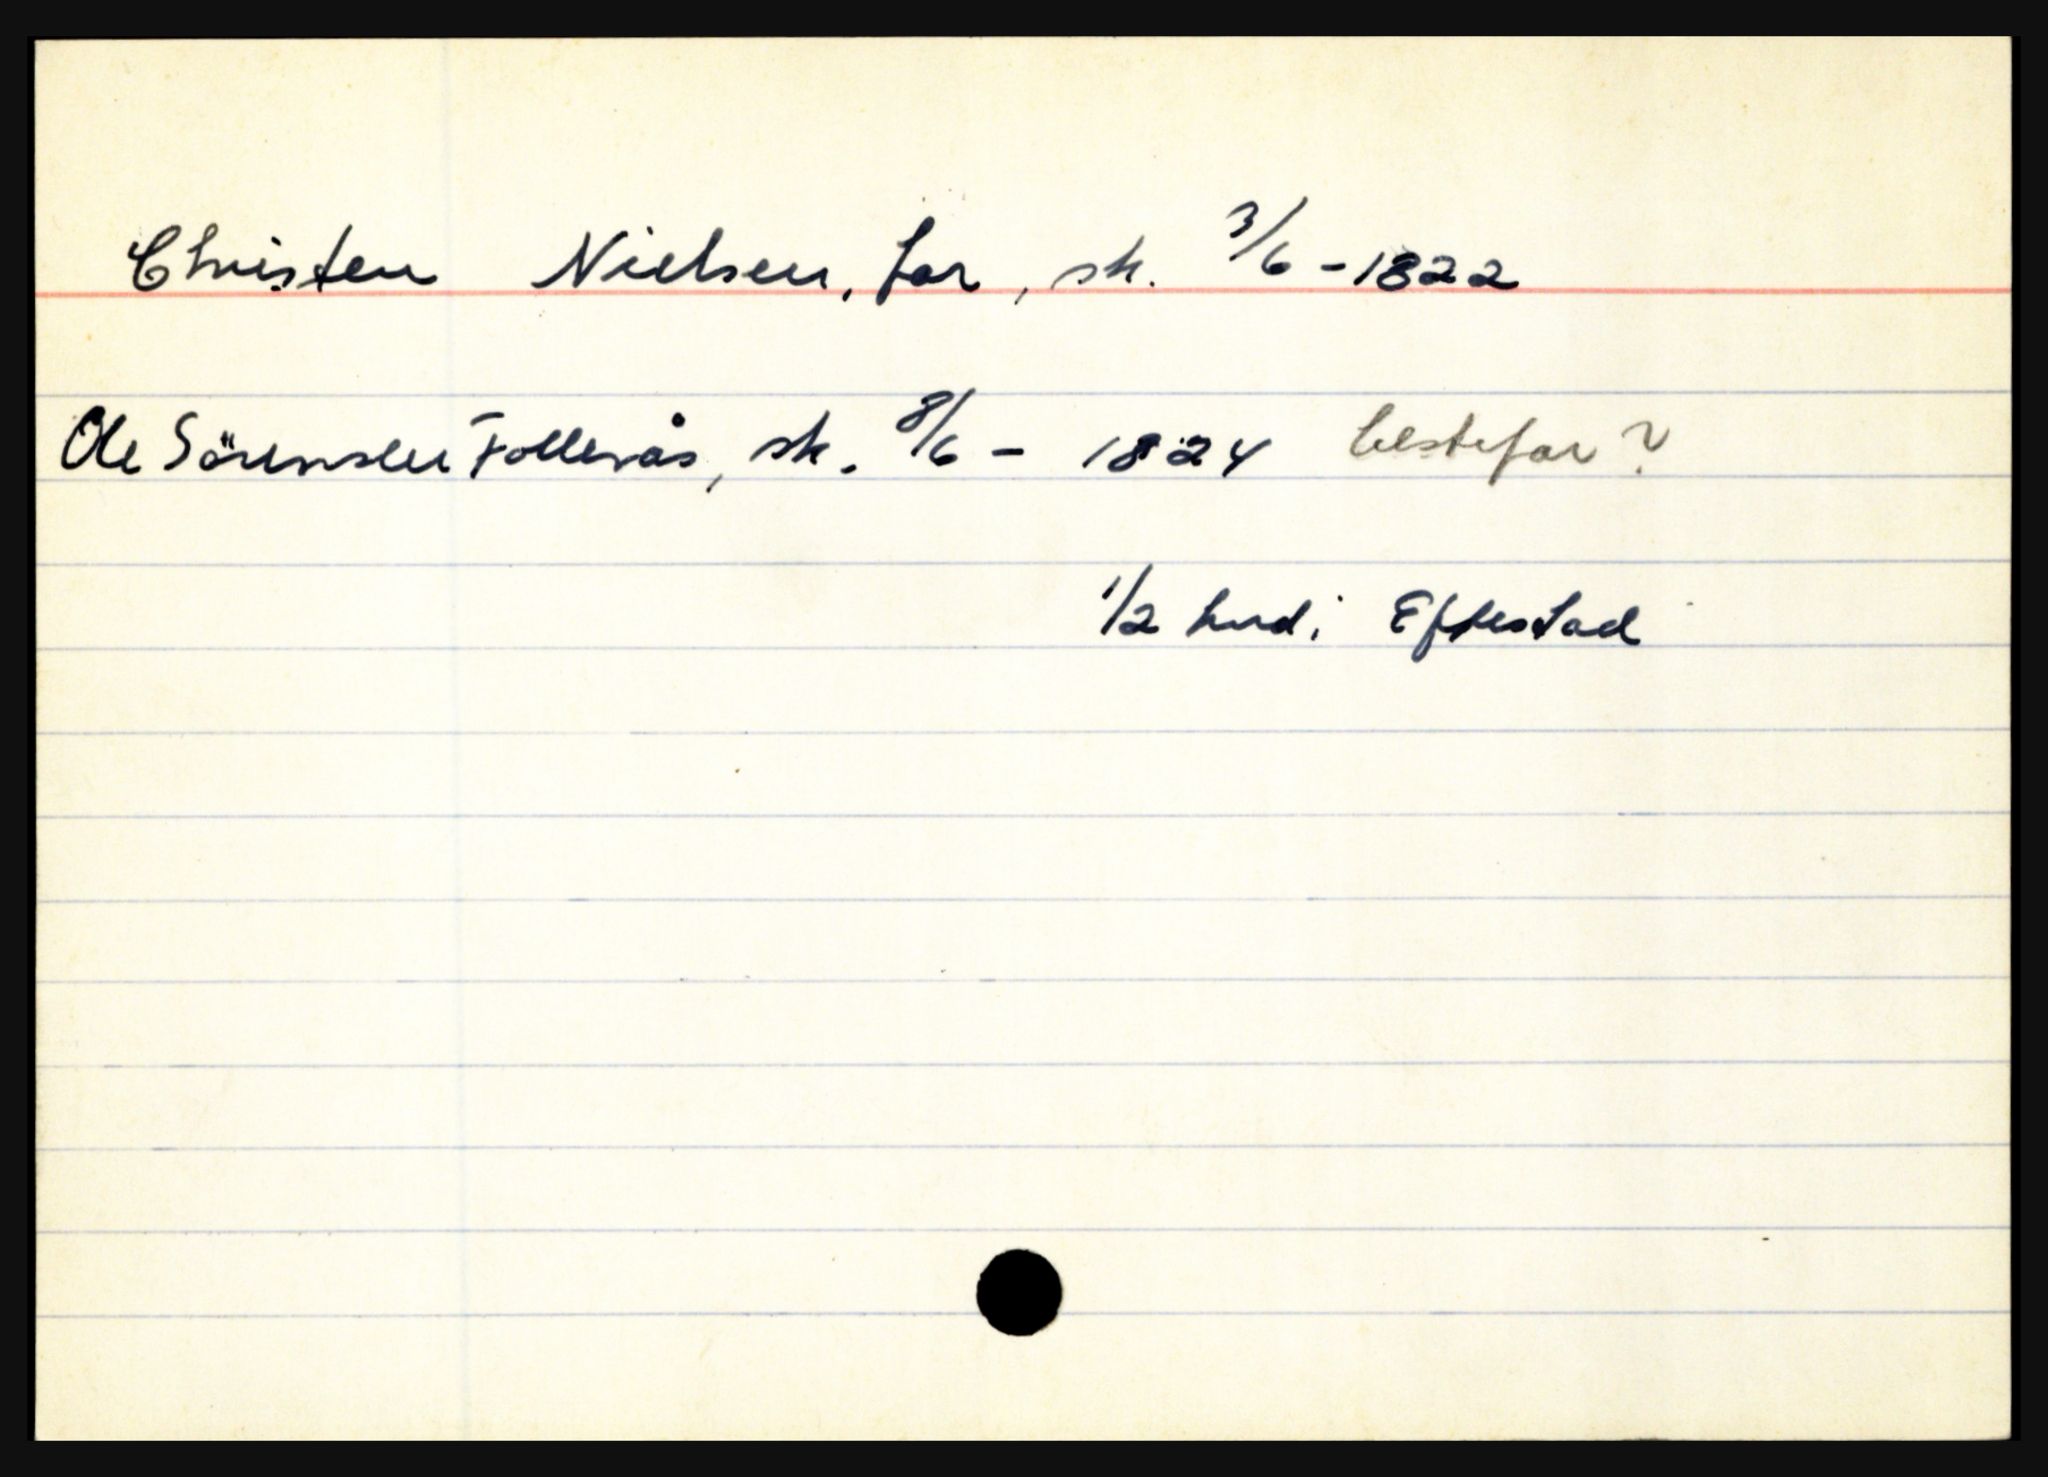 Christen Nielsen, far, sk. 3/6 - 1822
Ole Sörensen Follerås, sk. 8/6 - 1824 bestefar?
1/2 hud i Eftestad